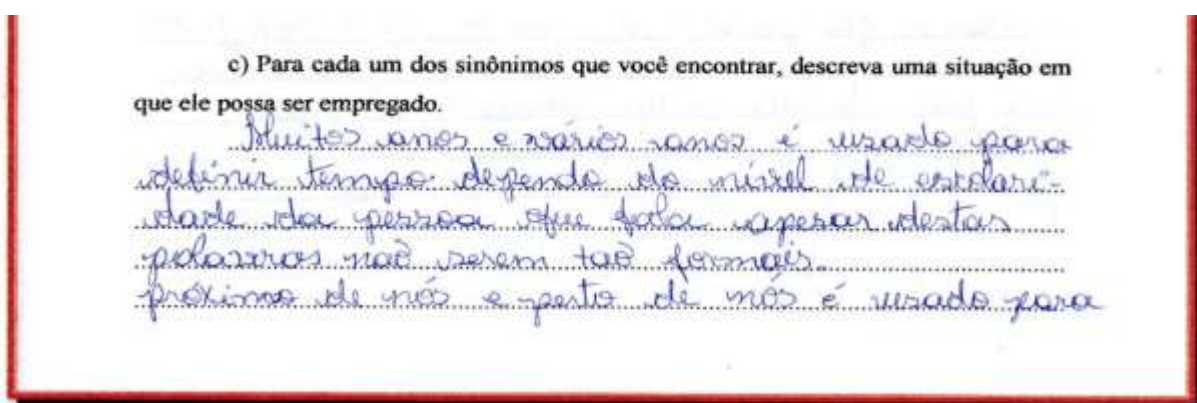 c) Para cada um dos sinônimos que você encontrar, descreva uma situação em
que ele possa ser empregado.
Muitos anos e vários anos é usado para
definir tempo depende do nível de escolari-
dade da pessoa que fala apesar destas
palavras não serem tão formais.
próximo de nós e perto de nós é usado para